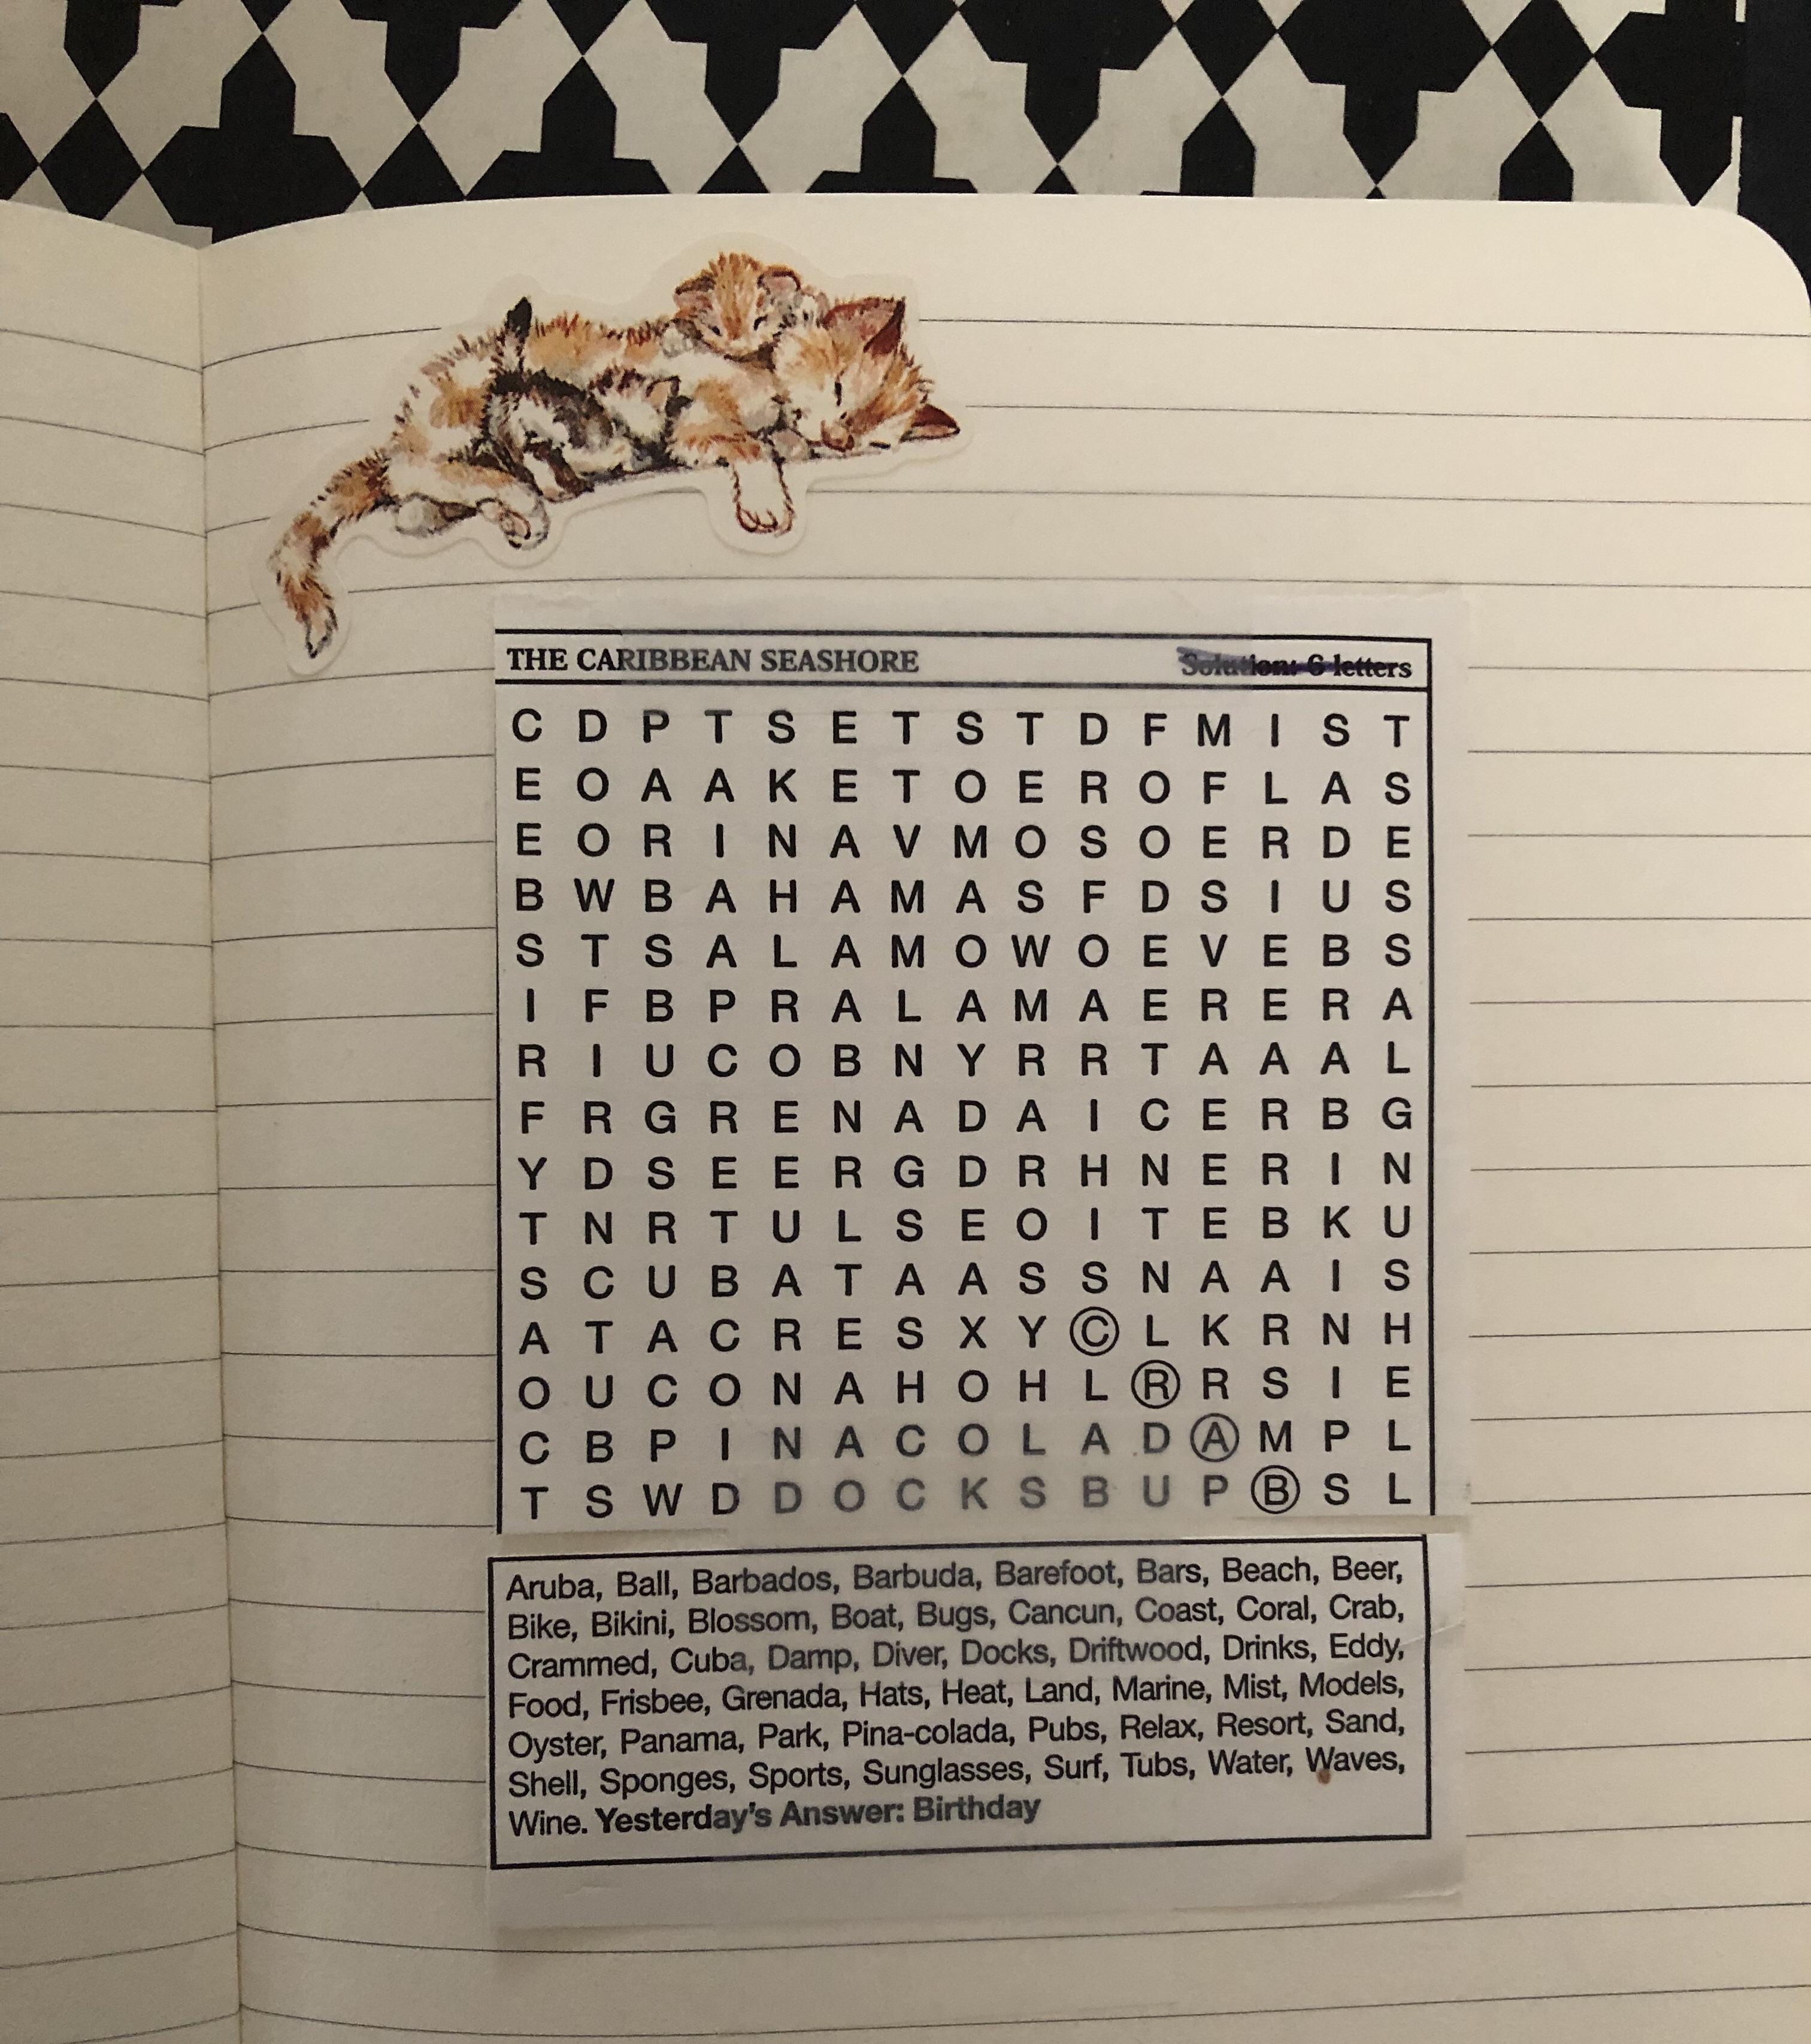 THE CARIBBEAN SEASHORE Solution: 6 letters
C D P T S E T S T D F M I S T
E O A A K E T O E R O F L A S
E O R I N A V M O S O E R D E
B W B A H A M A S F D S I U S
S T S A L A M O W O E V E B S
I F B P R A L A M A E R E R A
R I U C O B N Y R R T A A A L
F R G R E N A D A I C E R B G
Y D S E E R G D R H N E R I N
T N R T U L S E O I T E B K U
S C U B A T A A S S N A A I S
A T A C R E S X Y C L K R N H
O U C O N A H O H L R R S I E
C B P I N A C O L A D A M P L
T S W D D O C K S B U P B S L
Aruba, Ball, Barbados, Barbuda, Barefoot, Bars, Beach, Beer,
Bike, Bikini, Blossom, Boat, Bugs, Cancun, Coast, Coral, Crab,
Crammed, Cuba, Damp, Diver, Docks, Driftwood, Drinks, Eddy,
Food, Frisbee, Grenada, Hats, Heat, Land, Marine, Mist, Models,
Oyster, Panama, Park, Pina-colada, Pubs, Relax, Resort, Sand,
Shell, Sponges, Sports, Sunglasses, Surf, Tubs, Water, Waves,
Wine. Yesterday's Answer: Birthday